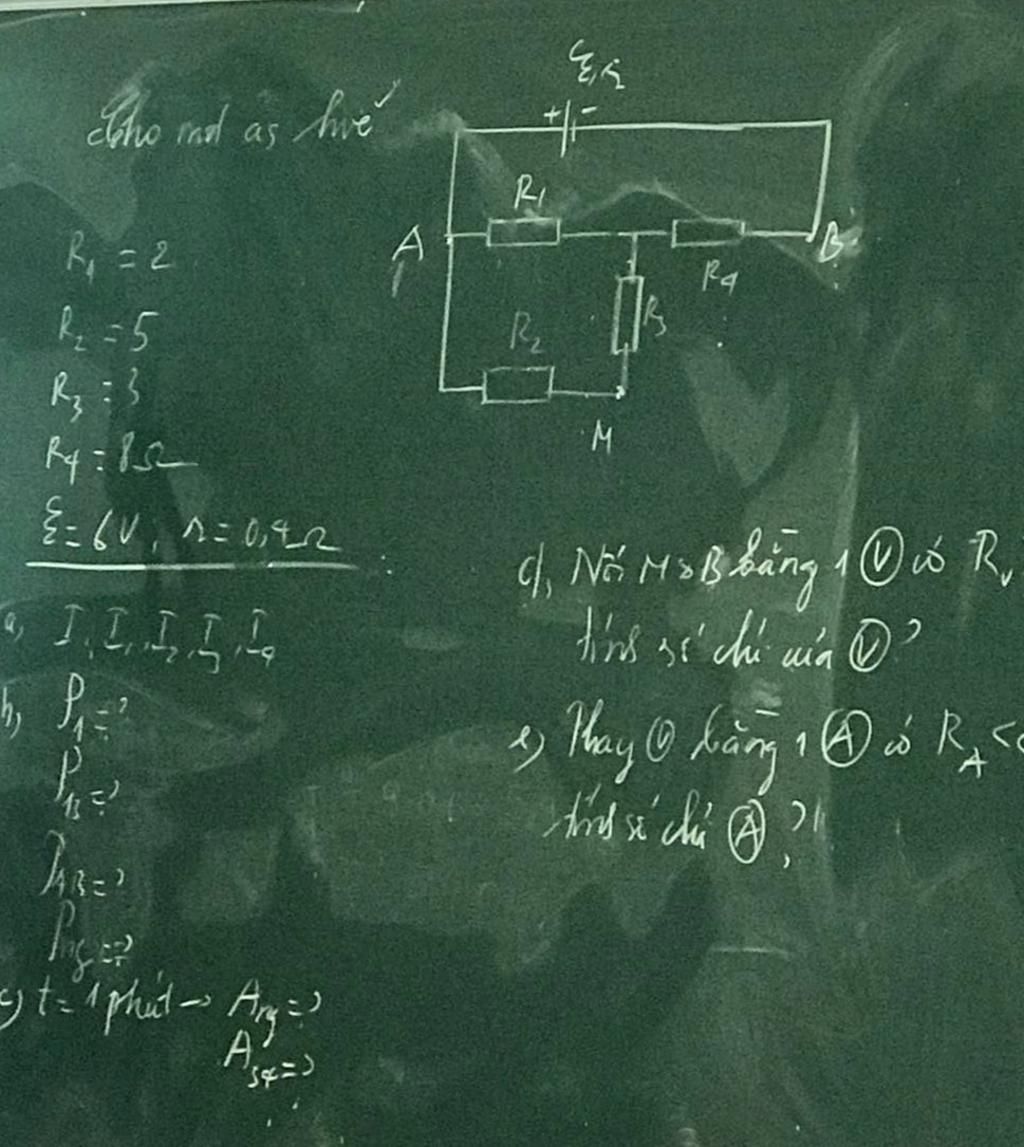 Cho mđ as hvẽ
ξ, r
+ -
R₁
A
B
R₄
R₂
R₃
M
R₁ = 2
R₂ = 5
R₃ = 3
R₄ = 8Ω
ξ = 6V, r = 0,4Ω
a, I, I₁, I₂, I₃, I₄
b, P₁ = ?
P₃ = ?
P_AB = ?
P_ng = ?
c) t = 1 phút → A_ng = ?
A_34 = ?
d, Nối M > B bằng 1 (V) có R_V
tính số chỉ của (V)?
e) Thay (V) bằng 1 (A) có R_A <<
tính số chỉ (A)?